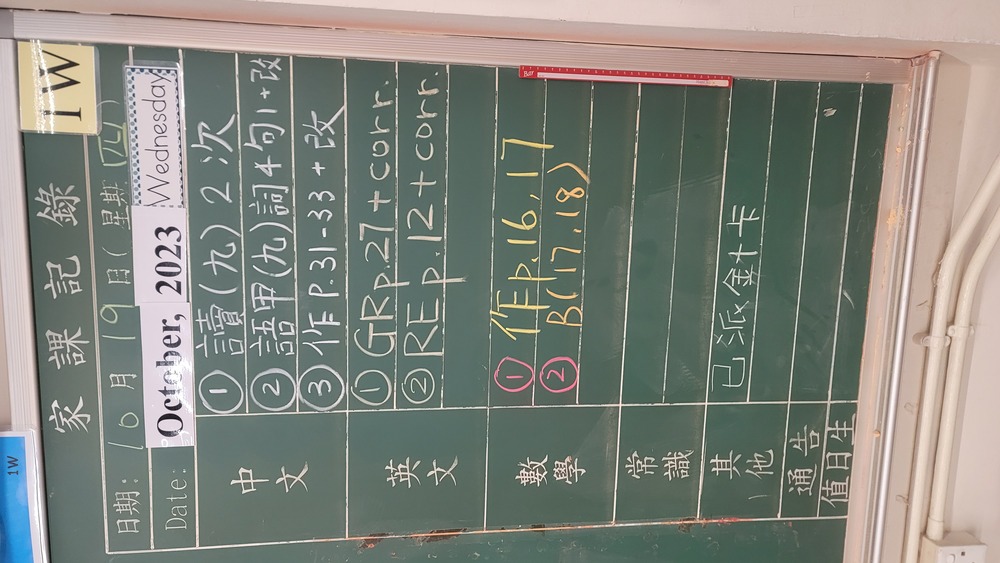 1W
家課記錄
日期: 10月19日(星期四)
Date: October, 2023 Wednesday
中文
①讀(九)2次
②語甲(九)詞4句1+改
③作P.31-33+改
英文
①GRp.27+corr.
②REp.12+corr.
數學
①作p.16,17
②B(17.18)
常識
其他
已派金卡
通告
值日生
1W